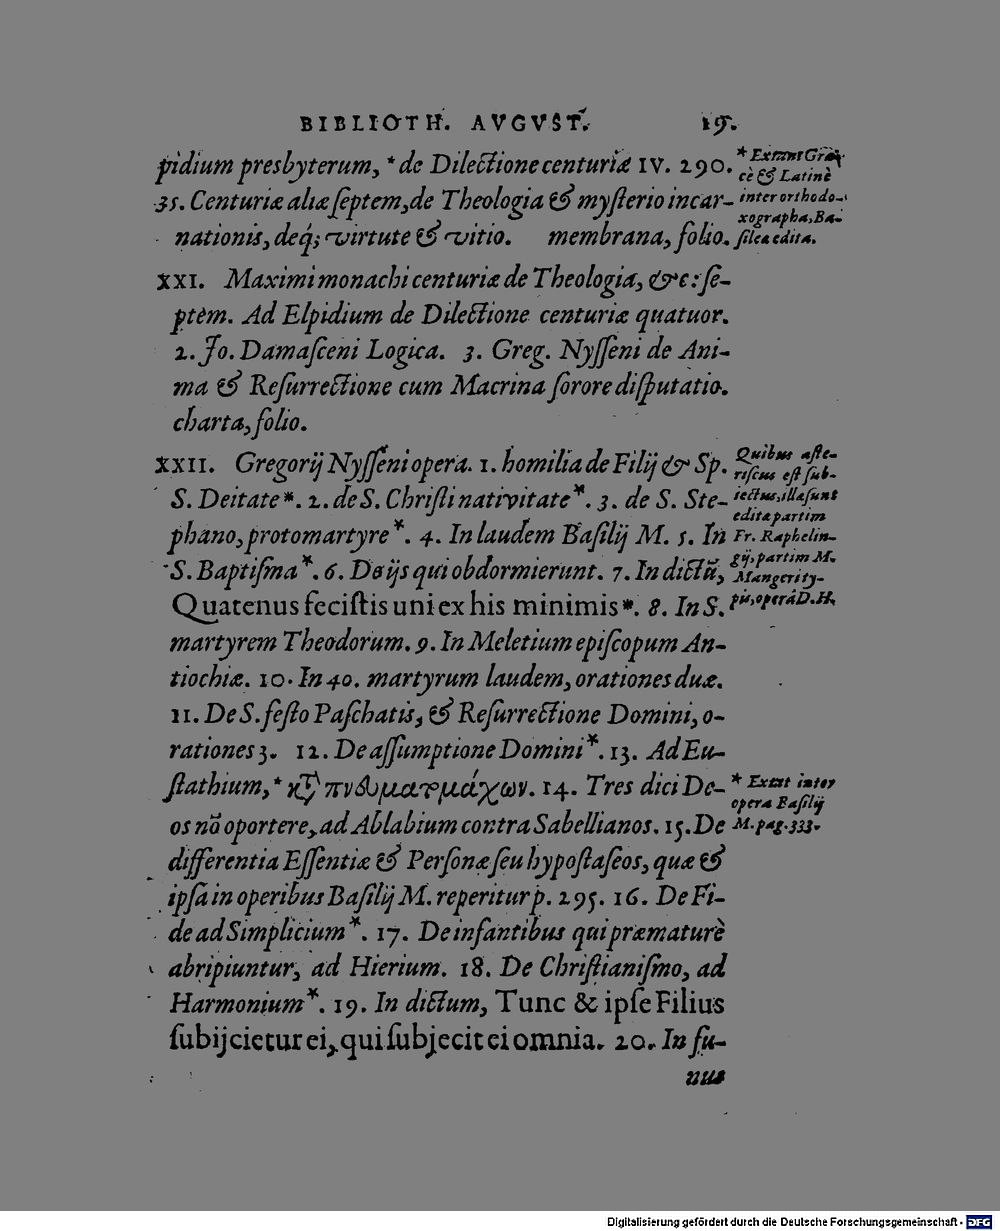 BIBLIOTH. AVGVST. 19.
pidium presbyterum, * de Dilectione centuriæ IV. 290.
35. Centuriæ aliæ ſeptem, de Theologia & myſterio incar-
nationis, deq́; virtute & vitio. membrana, folio.
* Extant Græ-
cè & Latinè
inter orthodo-
xographa, Ba-
ſileæ edita.
XXI. Maximi monachi centuriæ de Theologia, &c: ſe-
ptem. Ad Elpidium de Dilectione centuriæ quatuor.
2. Jo. Damaſceni Logica. 3. Greg. Nyſſeni de Ani-
ma & Reſurrectione cum Macrina ſorore diſputatio.
charta, folio.
XXII. Gregorij Nyſſeni opera. 1. homilia de Filij & Sp.
S. Deitate *. 2. de S. Chriſti nativitate *. 3. de S. Ste-
phano, protomartyre *. 4. In laudem Baſilij M. 5. In
S. Baptiſma *. 6. De ijs qui obdormierunt. 7. In dictũ,
Quatenus feciſtis uni ex his minimis *. 8. In S.
Quibus aſte-
riſcus eſt ſub-
iectus, illa ſunt
edita partim
Fr. Raphelin-
gij, partim M.
Mangeri ty-
pis, operâ D. H.
martyrem Theodorum. 9. In Meletium epiſcopum An-
tiochiæ. 10. In 40. martyrum laudem, orationes duæ.
11. De S. feſto Paſchatis, & Reſurrectione Domini, o-
rationes 3. 12. De aſſumptione Domini *. 13. Ad Eu-
ſtathium, * κτ̃ πνευματομάχων. 14. Tres dici De-
os nõ oportere, ad Ablabium contra Sabellianos. 15. De
* Extat inter
opera Baſilij
M. pag. 333.
differentia Eſſentiæ & Perſonæ ſeu hypoſtaſeos, quæ &
ipſa in operibus Baſilij M. reperitur p. 295. 16. De Fi-
de ad Simplicium *. 17. De infantibus qui præmaturè
abripiuntur, ad Hierium. 18. De Chriſtianiſmo, ad
Harmonium *. 19. In dictum, Tunc & ipſe Filius
ſubijcietur ei, qui ſubjecit ei omnia. 20. In fu-
nus
Digitalisierung gefördert durch die Deutsche Forschungsgemeinschaft - DFG